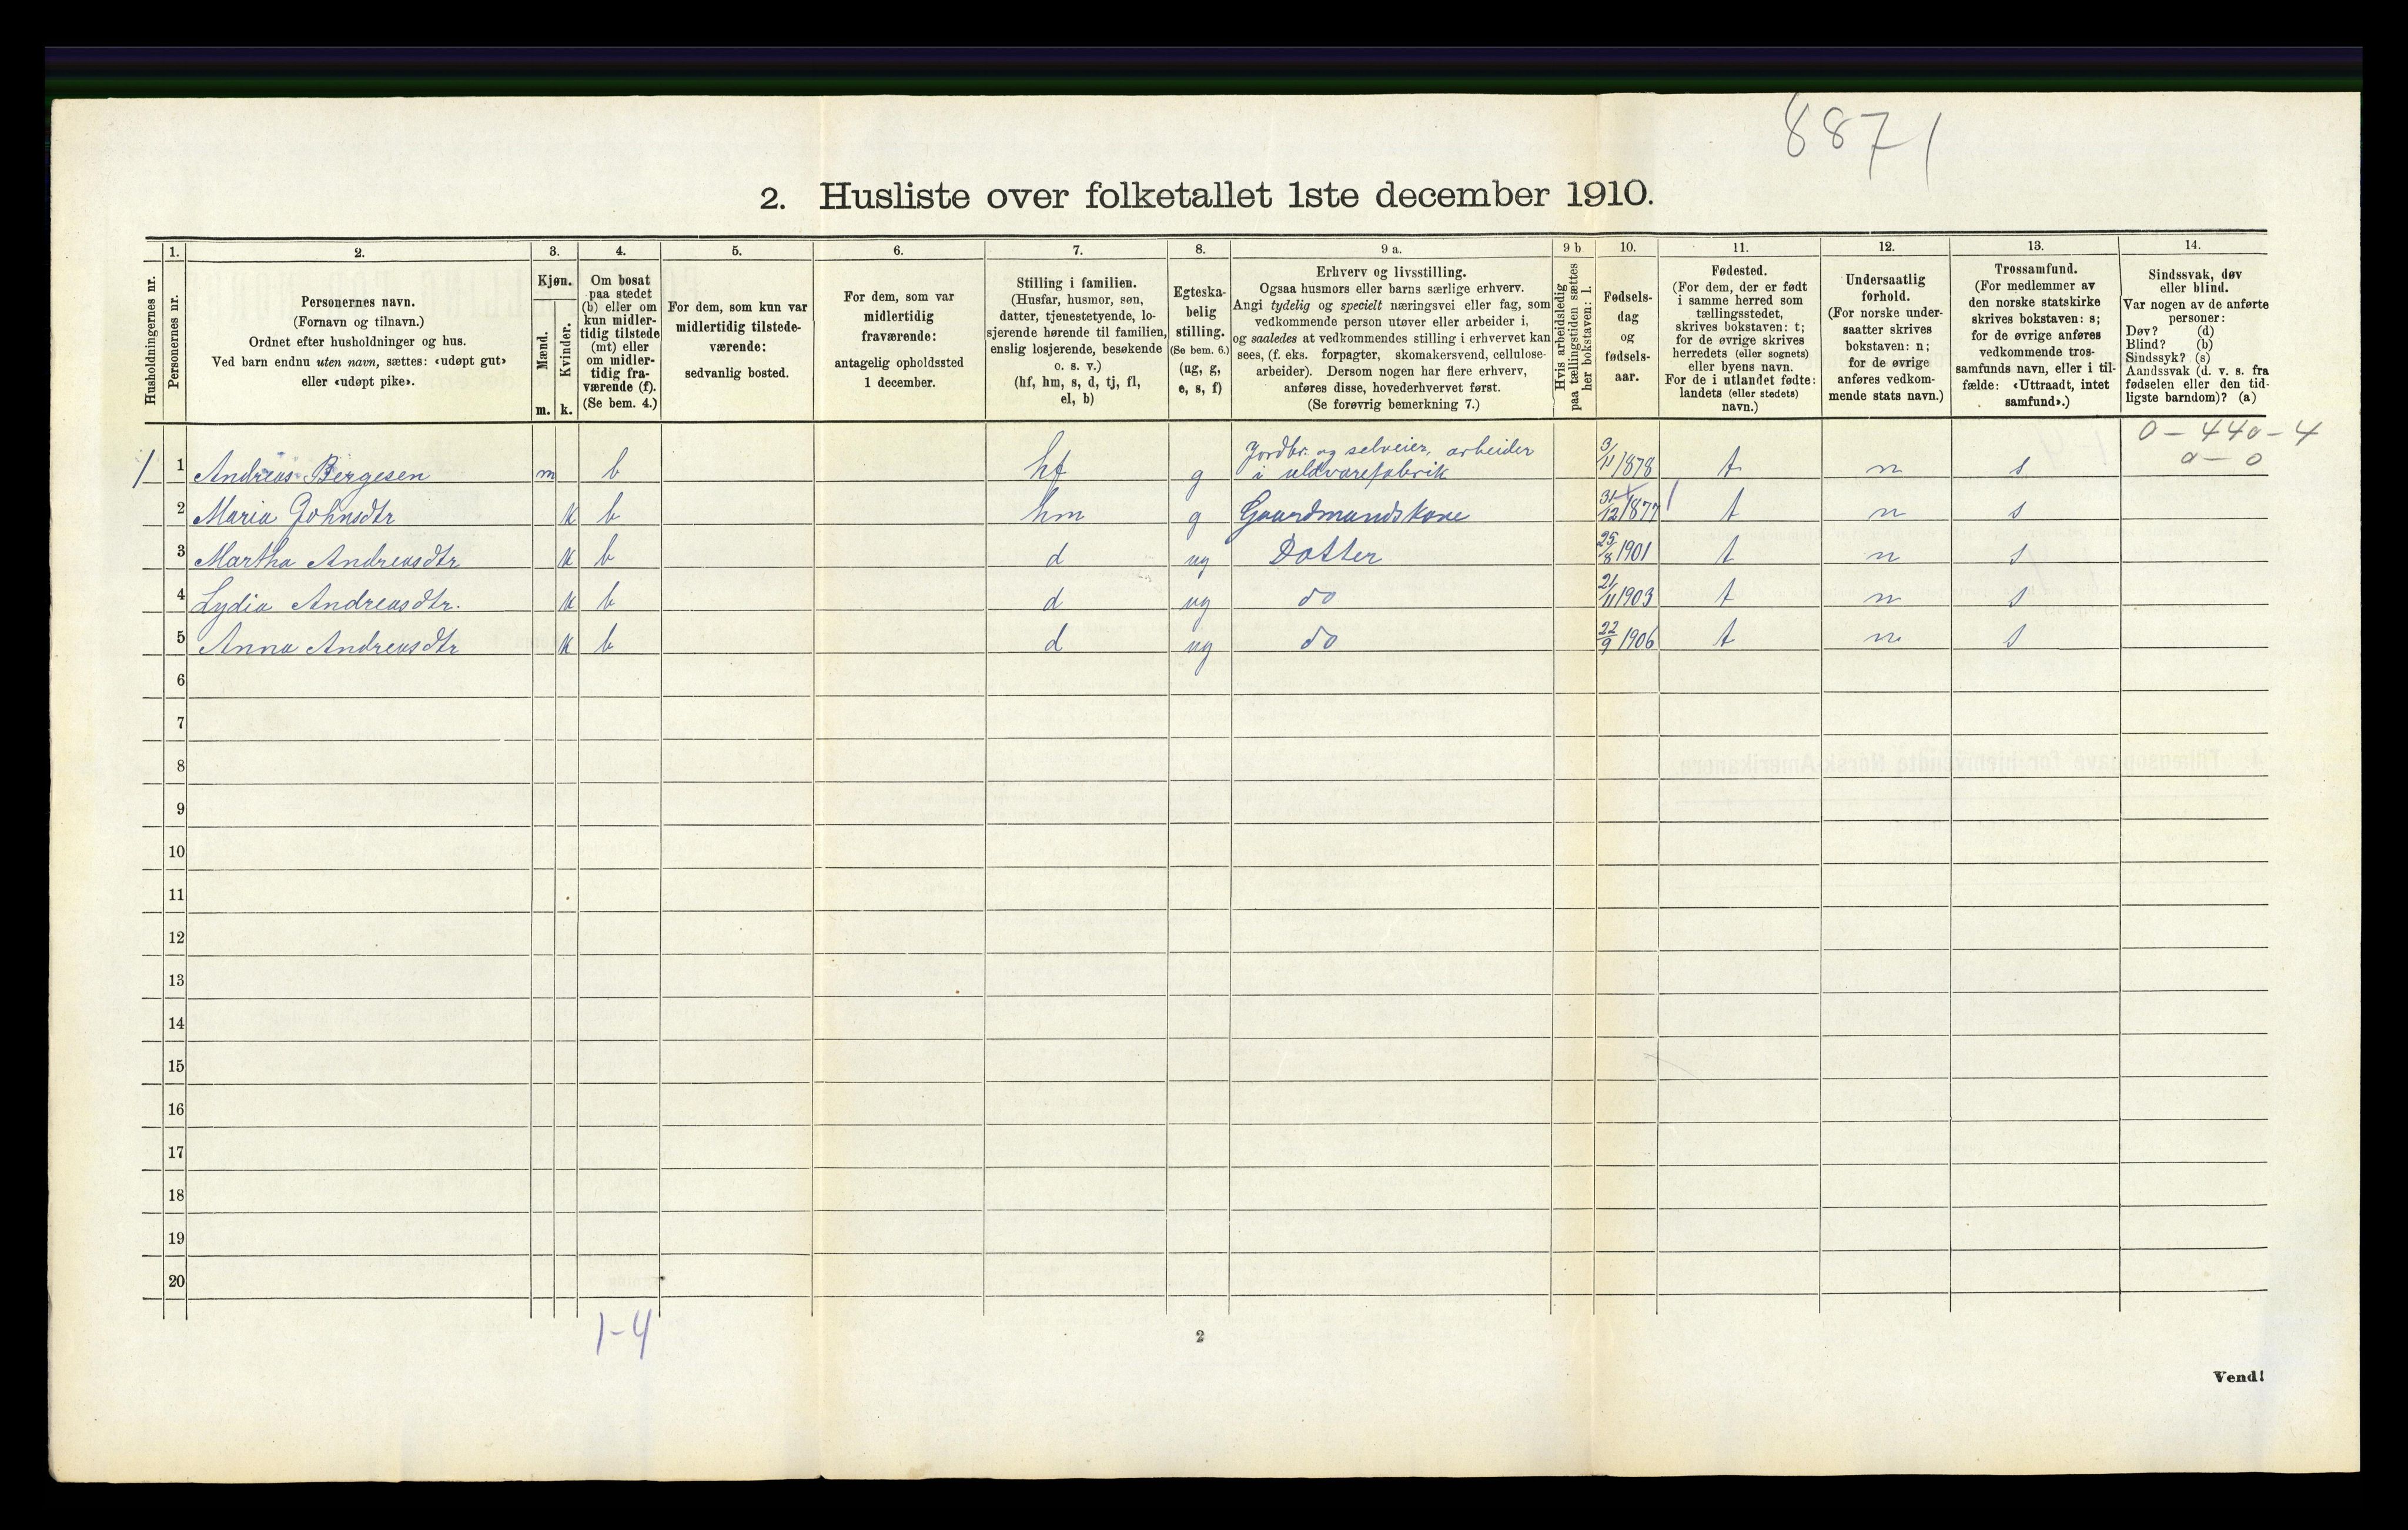 8871
2. Husliste over folketallet 1ste december 1910.
Husholdningernes nr.
1.
Personernes nr.
2.
Personernes navn.
(Fornavn og tilnavn.)
Ordnet efter husholdninger og hus.
Ved barn endnu uten navn, sættes: «udøpt gut»
eller «udøpt pike».
3.
Kjøn.
Mænd.
Kvinder.
m. k.
4.
Om bosat
paa stedet
(b) eller om
kun midler-
tidig tilstede
(mt) eller
om midler-
tidig fra-
værende (f).
(Se bem. 4.)
5.
For dem, som kun var
midlertidig tilstede-
værende:
sedvanlig bosted.
6.
For dem, som var
midlertidig
fraværende:
antagelig opholdssted
1 december.
7.
Stilling i familien.
(Husfar, husmor, søn,
datter, tjenestetyende, lo-
sjerende hørende til familien,
enslig losjerende, besøkende
o. s. v.)
(hf, hm, s, d, tj, fl,
el, b)
8.
Egteska-
belig
stilling.
(Se bem. 6.)
(ug, g,
e, s, f)
9 a.
Erhverv og livsstilling.
Ogsaa husmors eller barns særlige erhverv.
Angi tydelig og specielt næringsvei eller fag, som
vedkommende person utøver eller arbeider i,
og saaledes at vedkommendes stilling i erhvervet kan
sees, (f. eks. forpagter, skomakersvend, cellulose-
arbeider). Dersom nogen har flere erhverv,
anføres disse, hovederhvervet først.
(Se forøvrig bemerkning 7.)
9 b
Hvis arbeidsledig
paa tællingstiden sættes
her bokstaven: l.
10.
Fødsels-
dag
og
fødsels-
aar.
11.
Fødested.
(For dem, der er født
i samme herred som
tællingsstedet,
skrives bokstaven: t;
for de øvrige skrives
herredets (eller sognets)
eller byens navn.
For de i utlandet fødte:
landets (eller stedets)
navn.)
12.
Undersaatlig
forhold.
(For norske under-
saatter skrives
bokstaven: n;
for de øvrige
anføres vedkom-
mende stats navn.)
13.
Trossamfund.
(For medlemmer av
den norske statskirke
skrives bokstaven: s;
for de øvrige anføres
vedkommende tros-
samfunds navn, eller i til-
fælde: «Uttraadt, intet
samfund».)
14.
Sindssvak, døv
eller blind.
Var nogen av de anførte
personer:
Døv? (d)
Blind? (b)
Sindssyk? (s)
Aandssvak (d. v. s. fra
fødselen eller den tid-
ligste barndom)? (a)
0 - 440 - 4
0 - 0
1 1 Andreas Bergesen m b hf g Jordbr. og selveier, arbeider i uldvarefabrik 3/11 1878 t n s
2 Maria Johnsdtr k b hm g Gaardmandskone 31/12 1877 t n s
3 Martha Andreasdtr k b d ug Datter 25/8 1901 t n s
4 Lydia Andreasdtr. k b d ug do 21/11 1903 t n s
5 Anna Andreasdtr k b d ug do 22/9 1906 t n s
6
7
8
9
10
11
12
13
14
15
16
17
18
19
20
1-4
2
Vend!